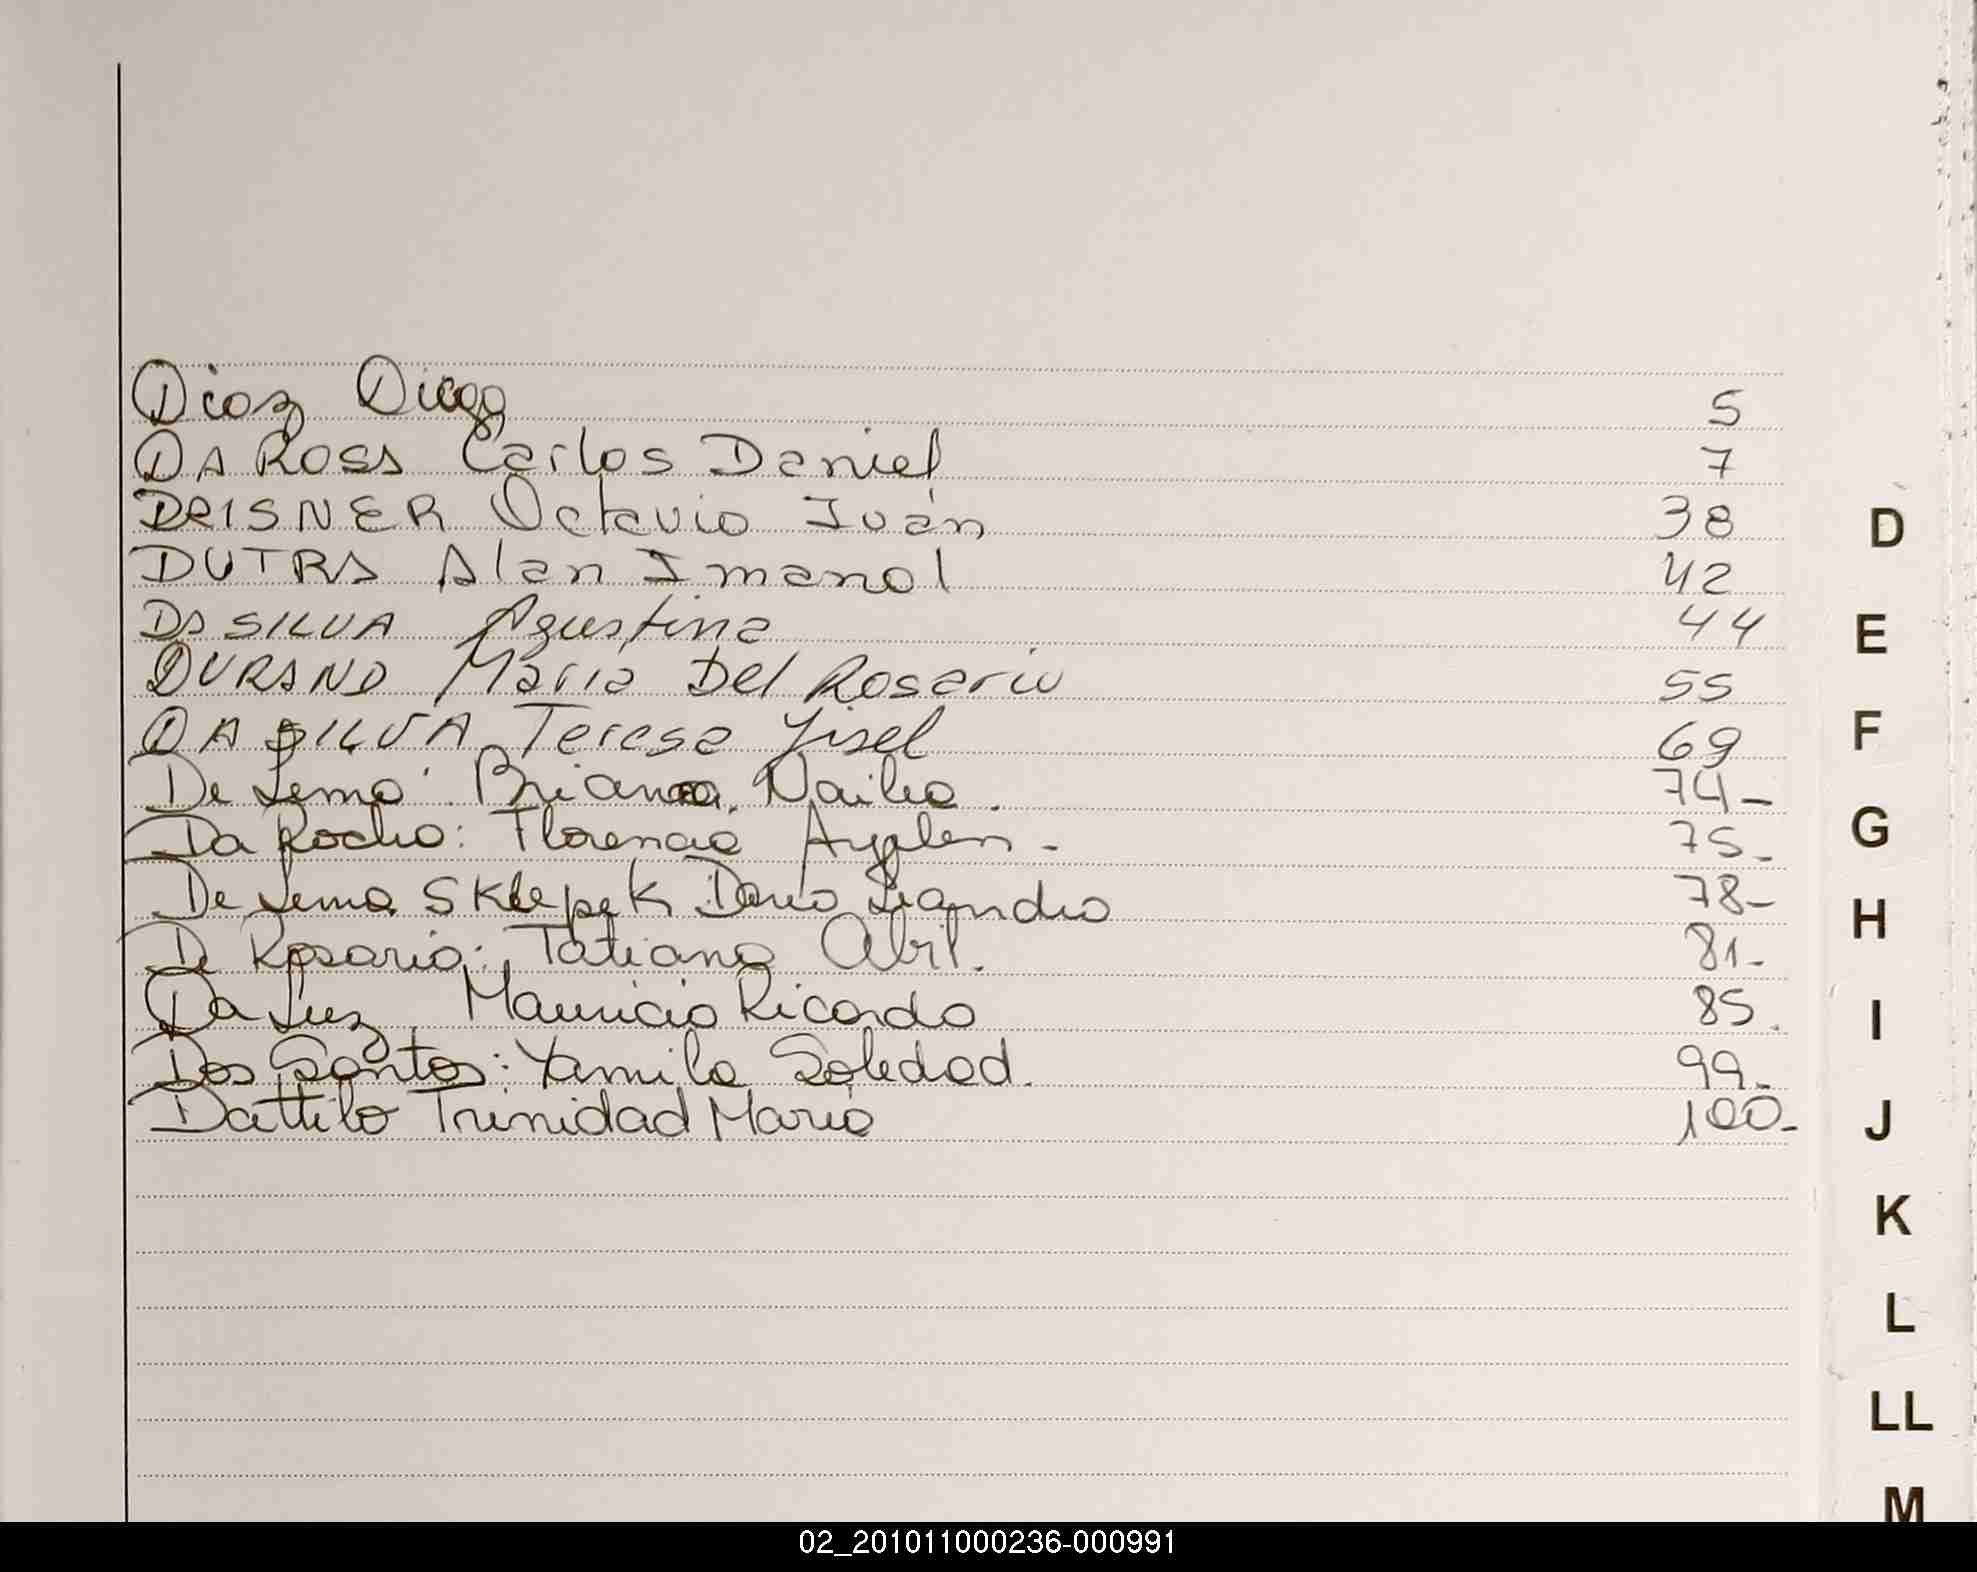 Diaz Diego 5
DA ROSA Carlos Daniel 7
DRISNER Octavio Iván 38
DUTRA Alan Imanol 42
DA SILVA Agustina 44
DURAND Maria Del Rosario 55
DA SILVA Teresa Yisel 69
De Lema: Briana Naila. 74-
Da Rocha: Florencia Ayelen. 75-
De Lema Sklepek Dario Leandro 78-
De Rosario: Tatiana Abril. 81-
Da Luz Mauricio Ricardo 85.
Dos Santos: Yamila Soledad. 99-
Dattilo Trinidad Maria 100-
D
E
F
G
H
I
J
K
L
LL
M
02_201011000236-000991